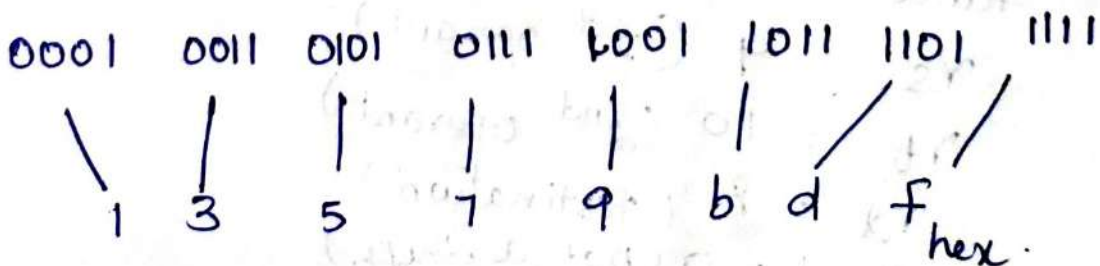 0001 0011 0101 0111 1001 1011 1101 1111
1 3 5 7 9 b d f hex.